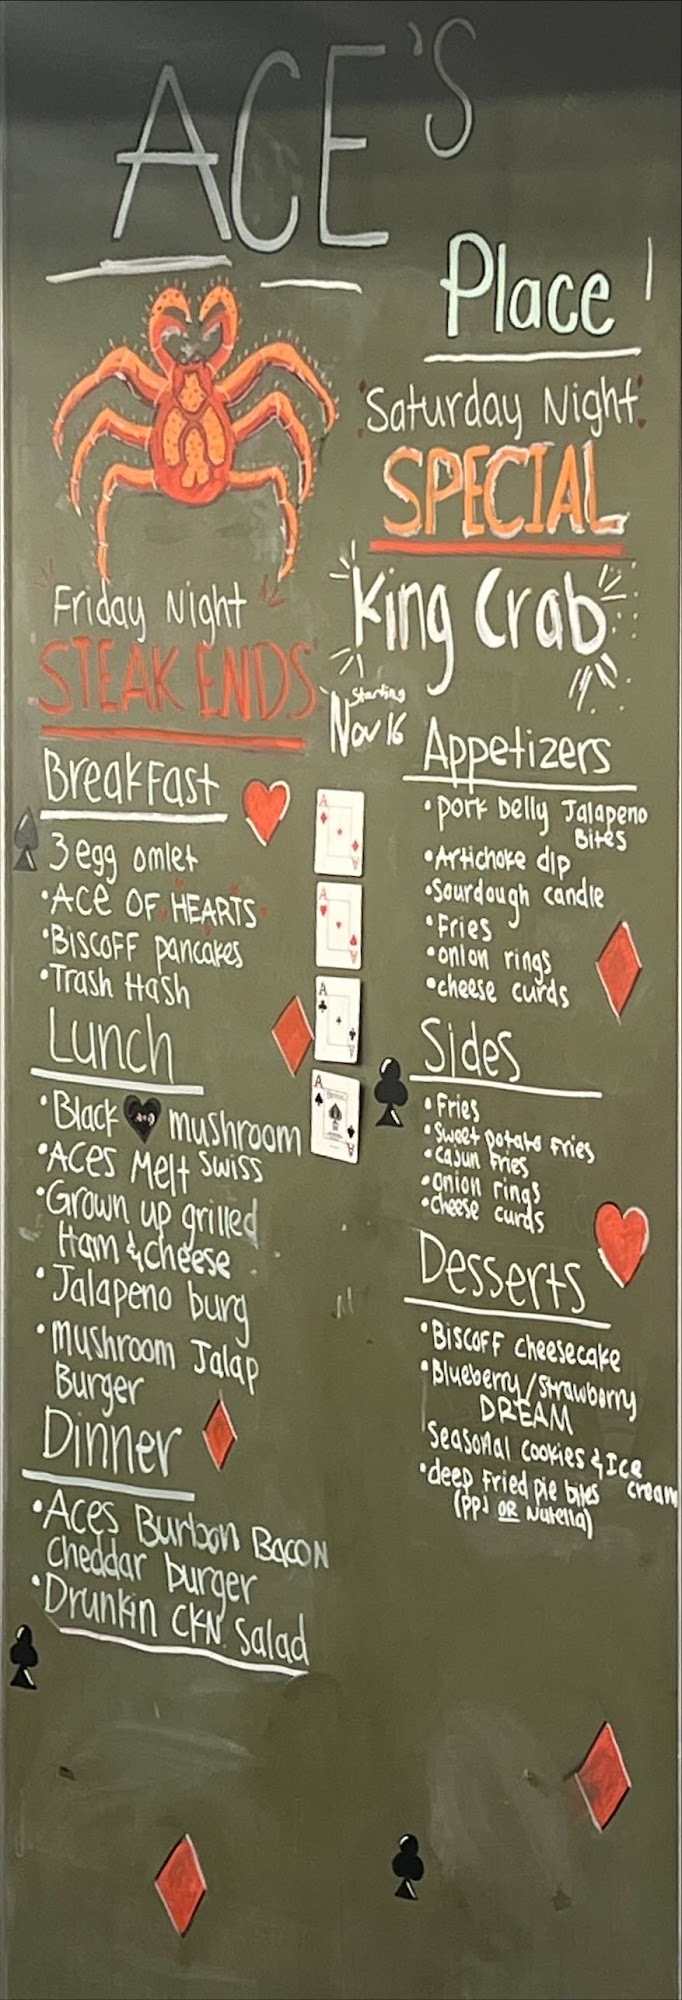 ACE'S
Place
Saturday Night
SPECIAL
King Crab
Starting
Nov 16
Friday Night
STEAK ENDS
Breakfast
3 egg omlet
• Ace OF HEARTS
• Biscoff pancakes
• Trash Hash
Lunch
• Black mushroom
• Aces Melt Swiss
• Grown up grilled
Ham & cheese
• Jalapeno burg
• mushroom Jalap
Burger
Dinner
• Aces Burbon Bacon
cheddar burger
• Drunkin CKN. Salad
A
A
A
A
A
A
A
A
Appetizers
• pork belly Jalapeno
Bites
• Artichoke dip
• Sourdough candle
• Fries
• onion rings
• cheese curds
Sides
• Fries
• Sweet potato fries
• cajun fries
• onion rings
• cheese curds
Desserts
• Biscoff cheesecake
• Blueberry/Strawberry
DREAM
Seasonal cookies & Ice
cream
• deep fried pie bites
(PPJ OR Nutella)